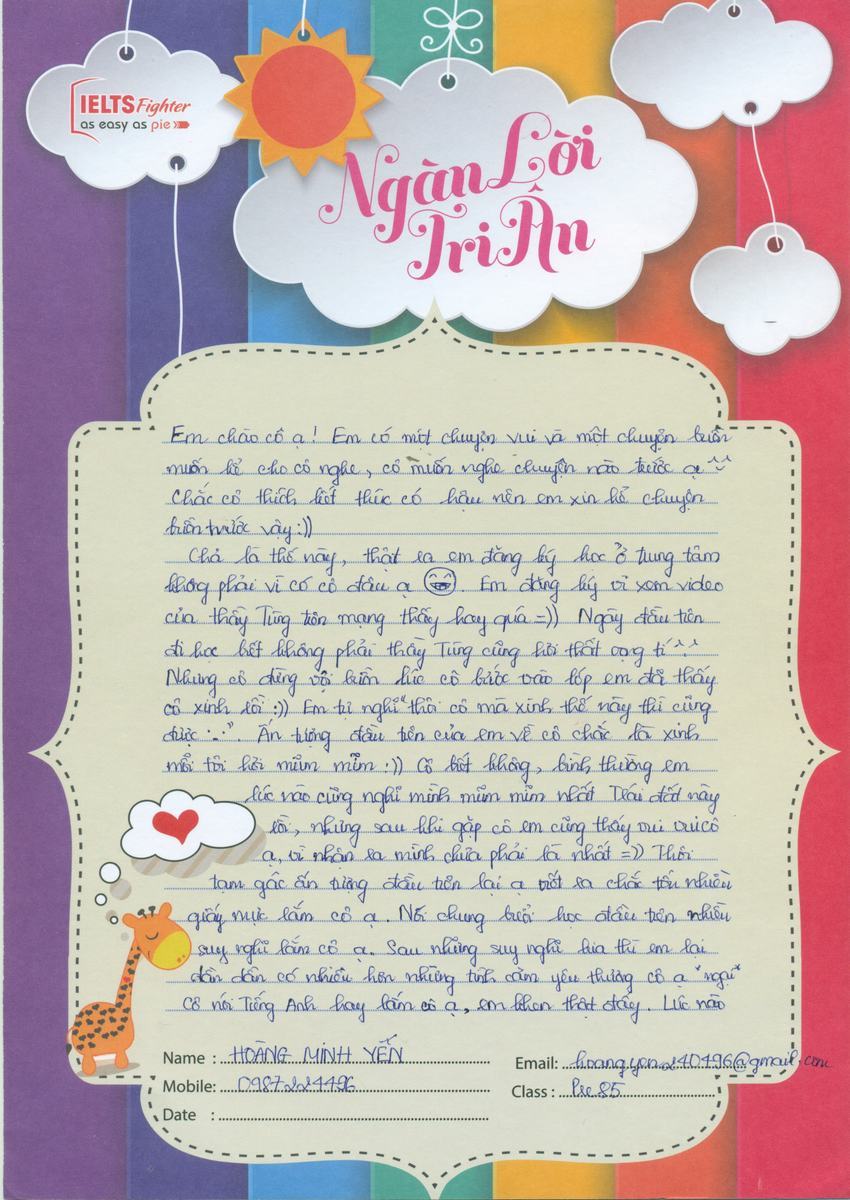 IELTS Fighter
as easy as pie
Ngàn Lời
Tri Ân
Em chào cô ạ! Em có một chuyện vui và một chuyện buồn
muốn kể cho cô nghe, cô muốn nghe chuyện nào trước ạ ^^
Chắc cô thích kết thúc có hậu nên em xin kể chuyện
buồn trước vậy :))
Chả là thế này, thật ra em đăng ký học ở trung tâm
không phải vì có cô đâu ạ. Em đăng ký vì xem video
của thầy Tùng trên mạng thấy hay quá =)) Ngày đầu tiên
đi học biết không phải thầy Tùng cũng hơi thất vọng tí ^^
Nhưng cô đừng vội buồn lúc cô bước vào lớp em đã thấy
cô xinh rồi :)) Em tự nghĩ "thôi cô mà xinh thế này thì cũng
được :_:". Ấn tượng đầu tiên của em về cô chắc là xinh
mỗi tội hơi mũm mĩm :)) Cô biết không, bình thường em
lúc nào cũng nghĩ mình mũm mĩm nhất Trái đất này
rồi, nhưng sau khi gặp cô em cũng thấy vui vui cô
ạ, vì nhận ra mình chưa phải là nhất =)) Thôi
tạm gác ấn tượng đầu tiên lại ạ viết ra chắc tốn nhiều
giấy mực lắm cô ạ. Nói chung buổi học đầu tiên nhiều
suy nghĩ lắm cô ạ. Sau những suy nghĩ kia thì em lại
dần dần có nhiều hơn những tình cảm yêu thương cô ạ *ngại*
Cô nói Tiếng Anh hay lắm cô ạ, em khen thật đấy. Lúc nào
Name : HOÀNG MINH YẾN
Email: hoangyen240496@gmail.com
Mobile: 0987224496
Class : Pre 85
Date :